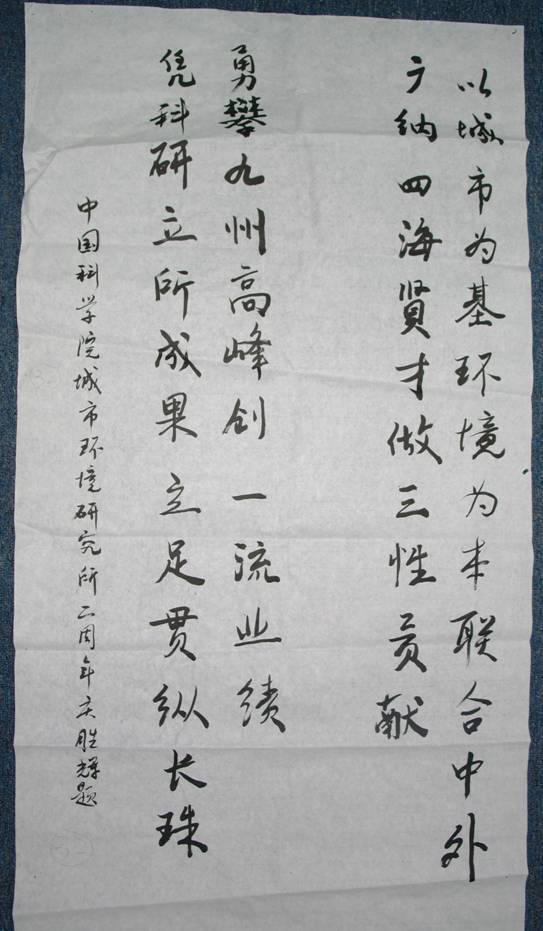 以城市为基环境为本联合中外
广纳四海贤才做三性贡献
凭科研立所成果立足贯纵长珠
勇攀九州高峰创一流业绩
中国科学院城市环境研究所二周年庆胜辉题